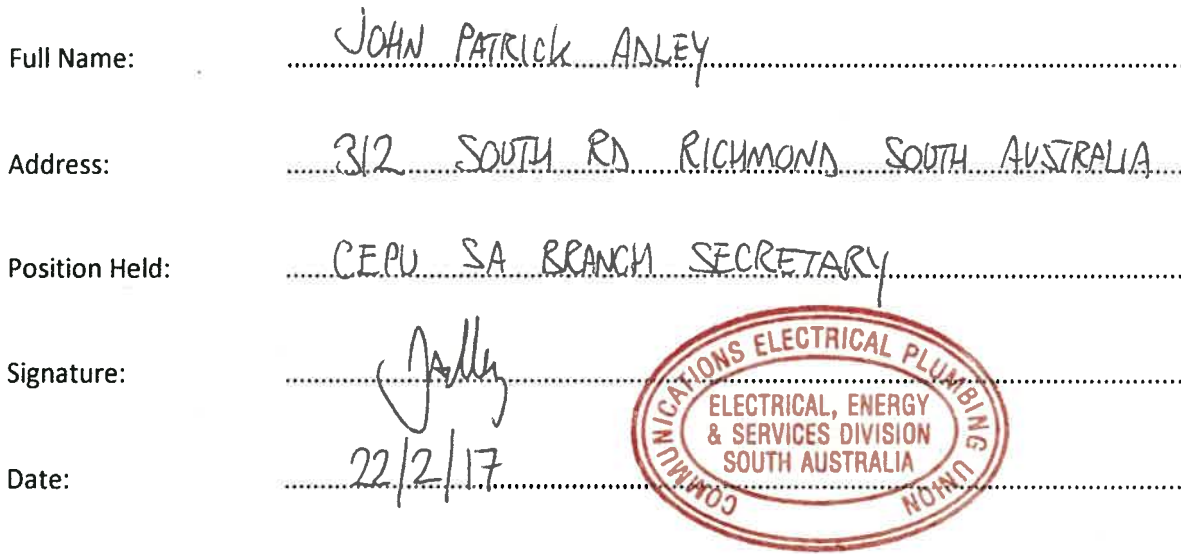 Full Name: JOHN PATRICK ADLEY
Address: 312 SOUTH RD RICHMOND SOUTH AUSTRALIA
Position Held: CEPU SA BRANCH SECRETARY
Signature: JAdley
COMMUNICATIONS ELECTRICAL PLUMBING UNION
ELECTRICAL, ENERGY
& SERVICES DIVISION
SOUTH AUSTRALIA
Date: 22/2/17